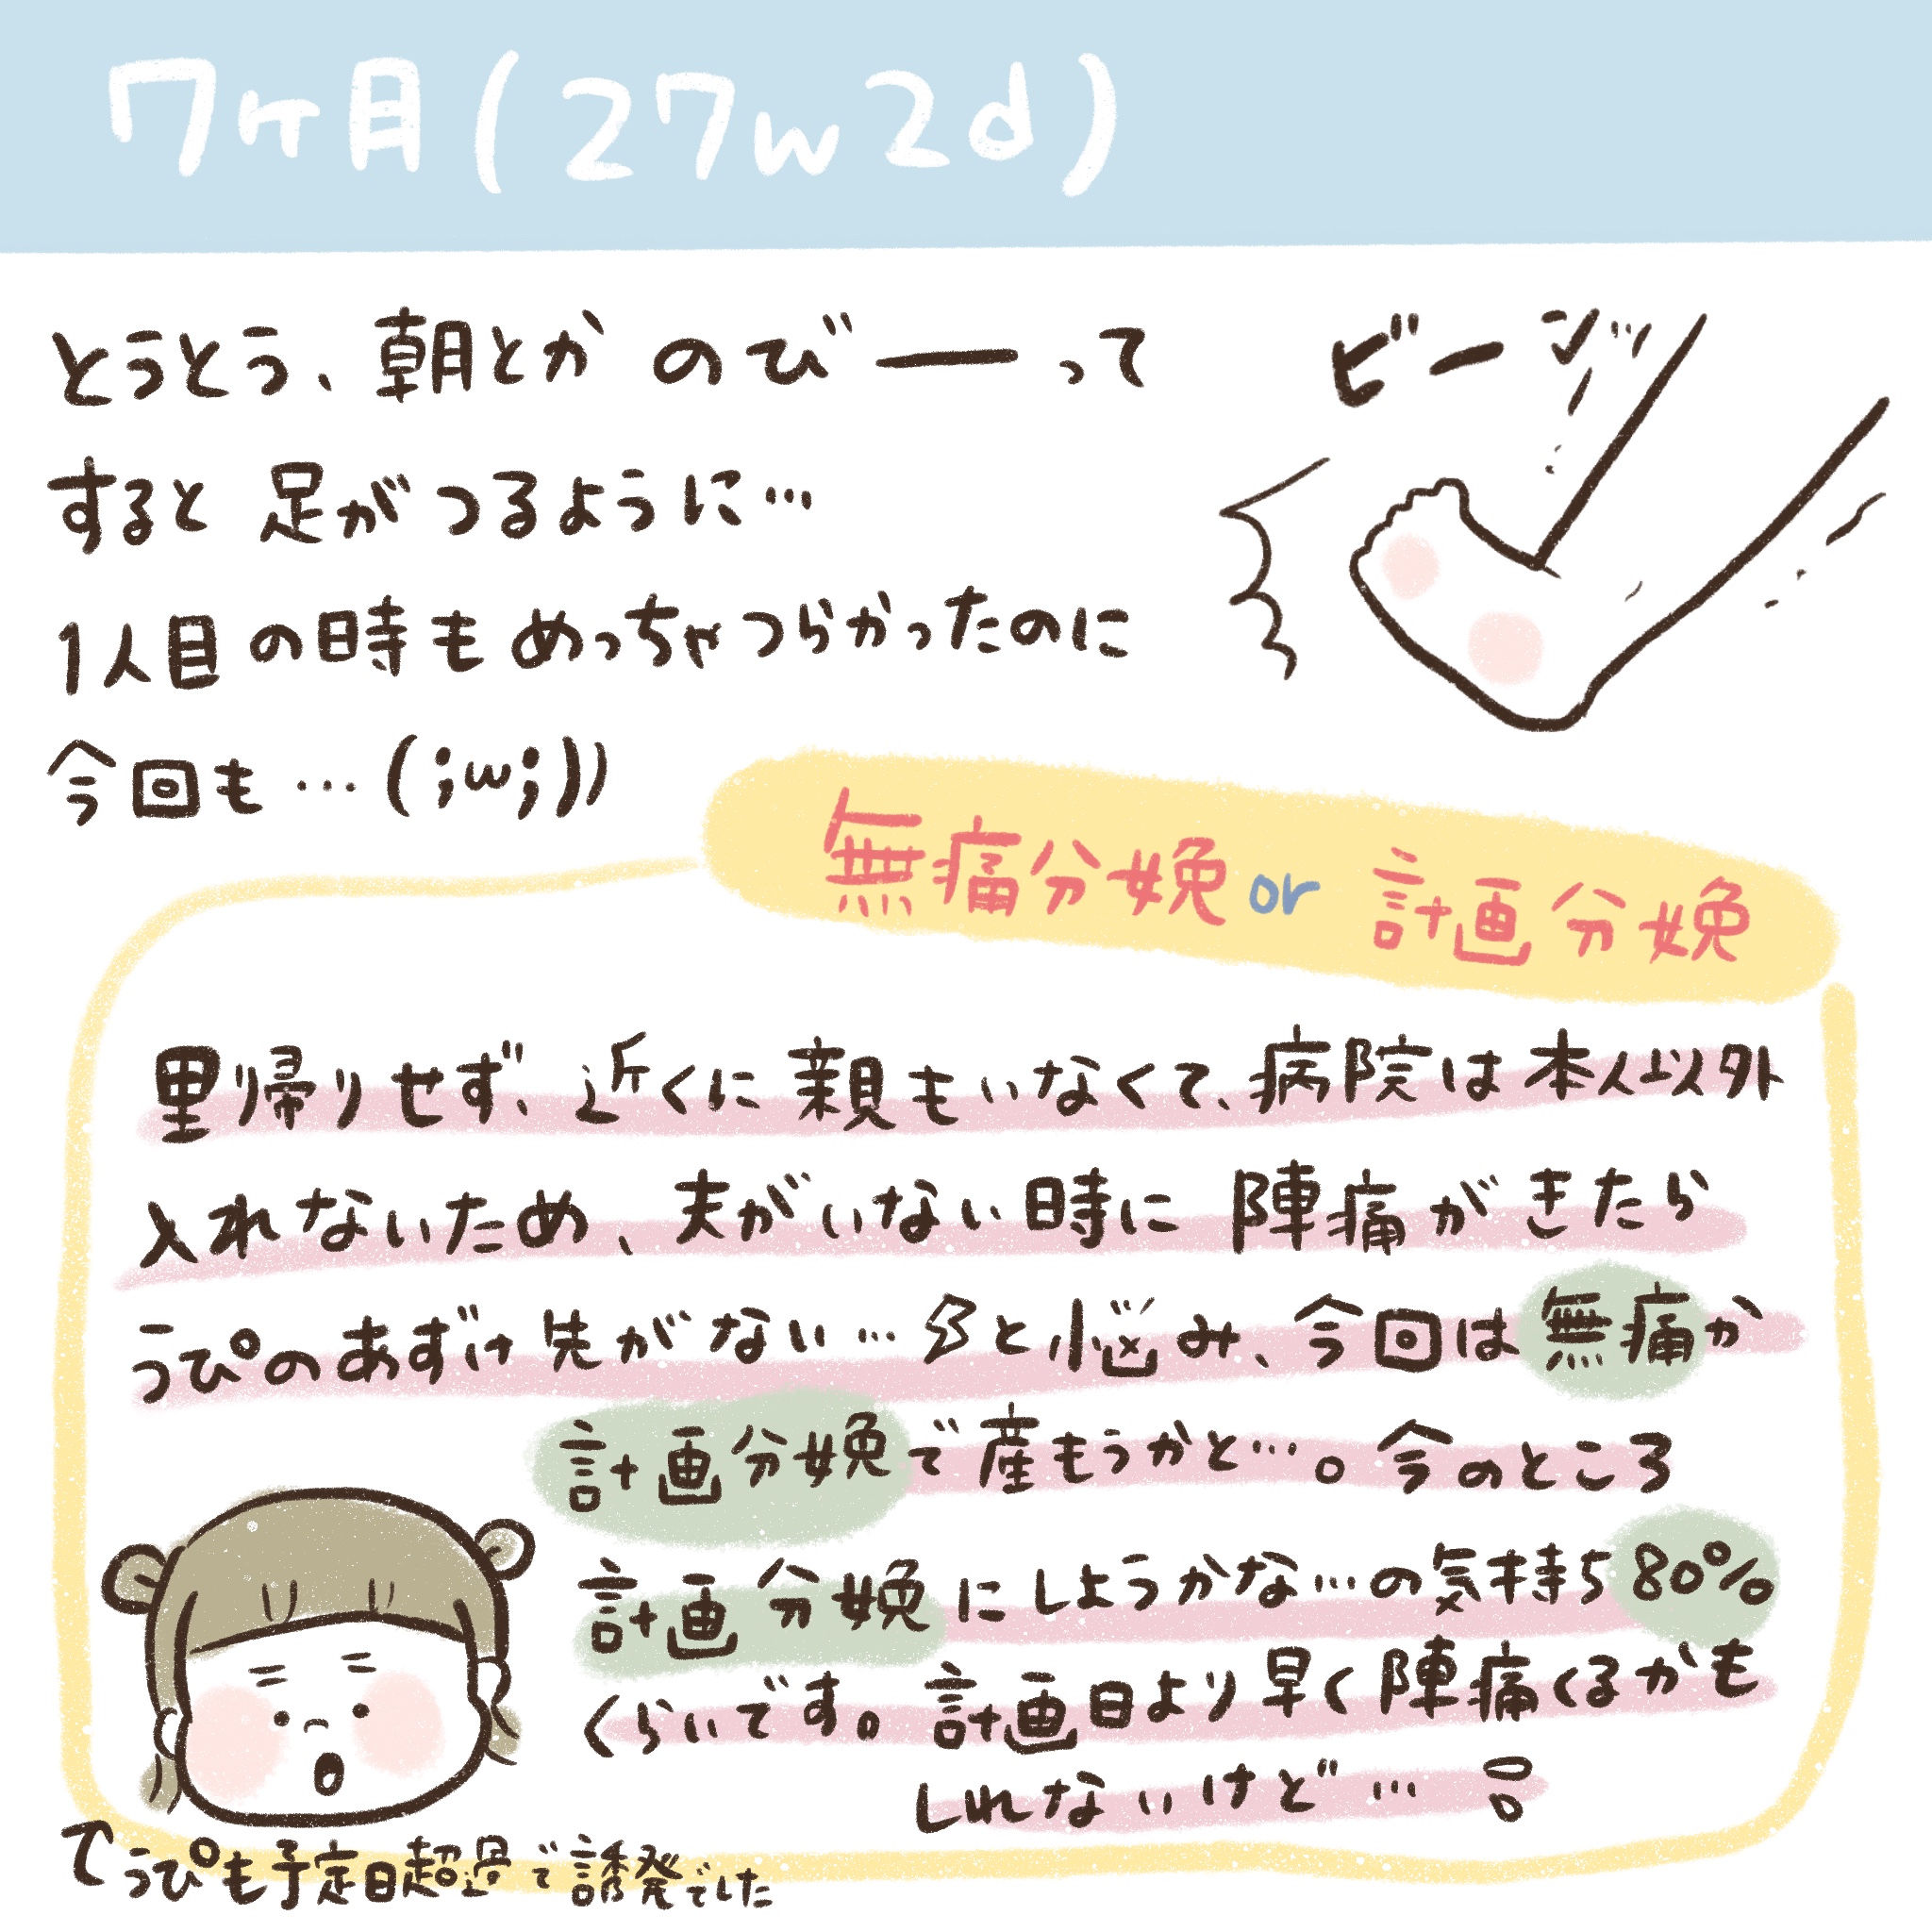 7ヶ月(27w2d)
とうとう、朝とか のびーーって
すると 足がつるように…
1人目の時もめっちゃつらかったのに
今回も…(;w;))
ビーンッ
無痛分娩or 計画分娩
里帰りせず、近くに親もいなくて、病院は本人以外
入れないため、夫がいない時に 陣痛がきたら
うぴのあずけ先がない…と悩み、今回は無痛か
計画分娩で産もうかと…。今のところ
計画分娩にしようかな…の気持ち80%
くらいです。計画日より早く陣痛くるかも
しれないけど…!
うぴも予定日超過で誘発でした